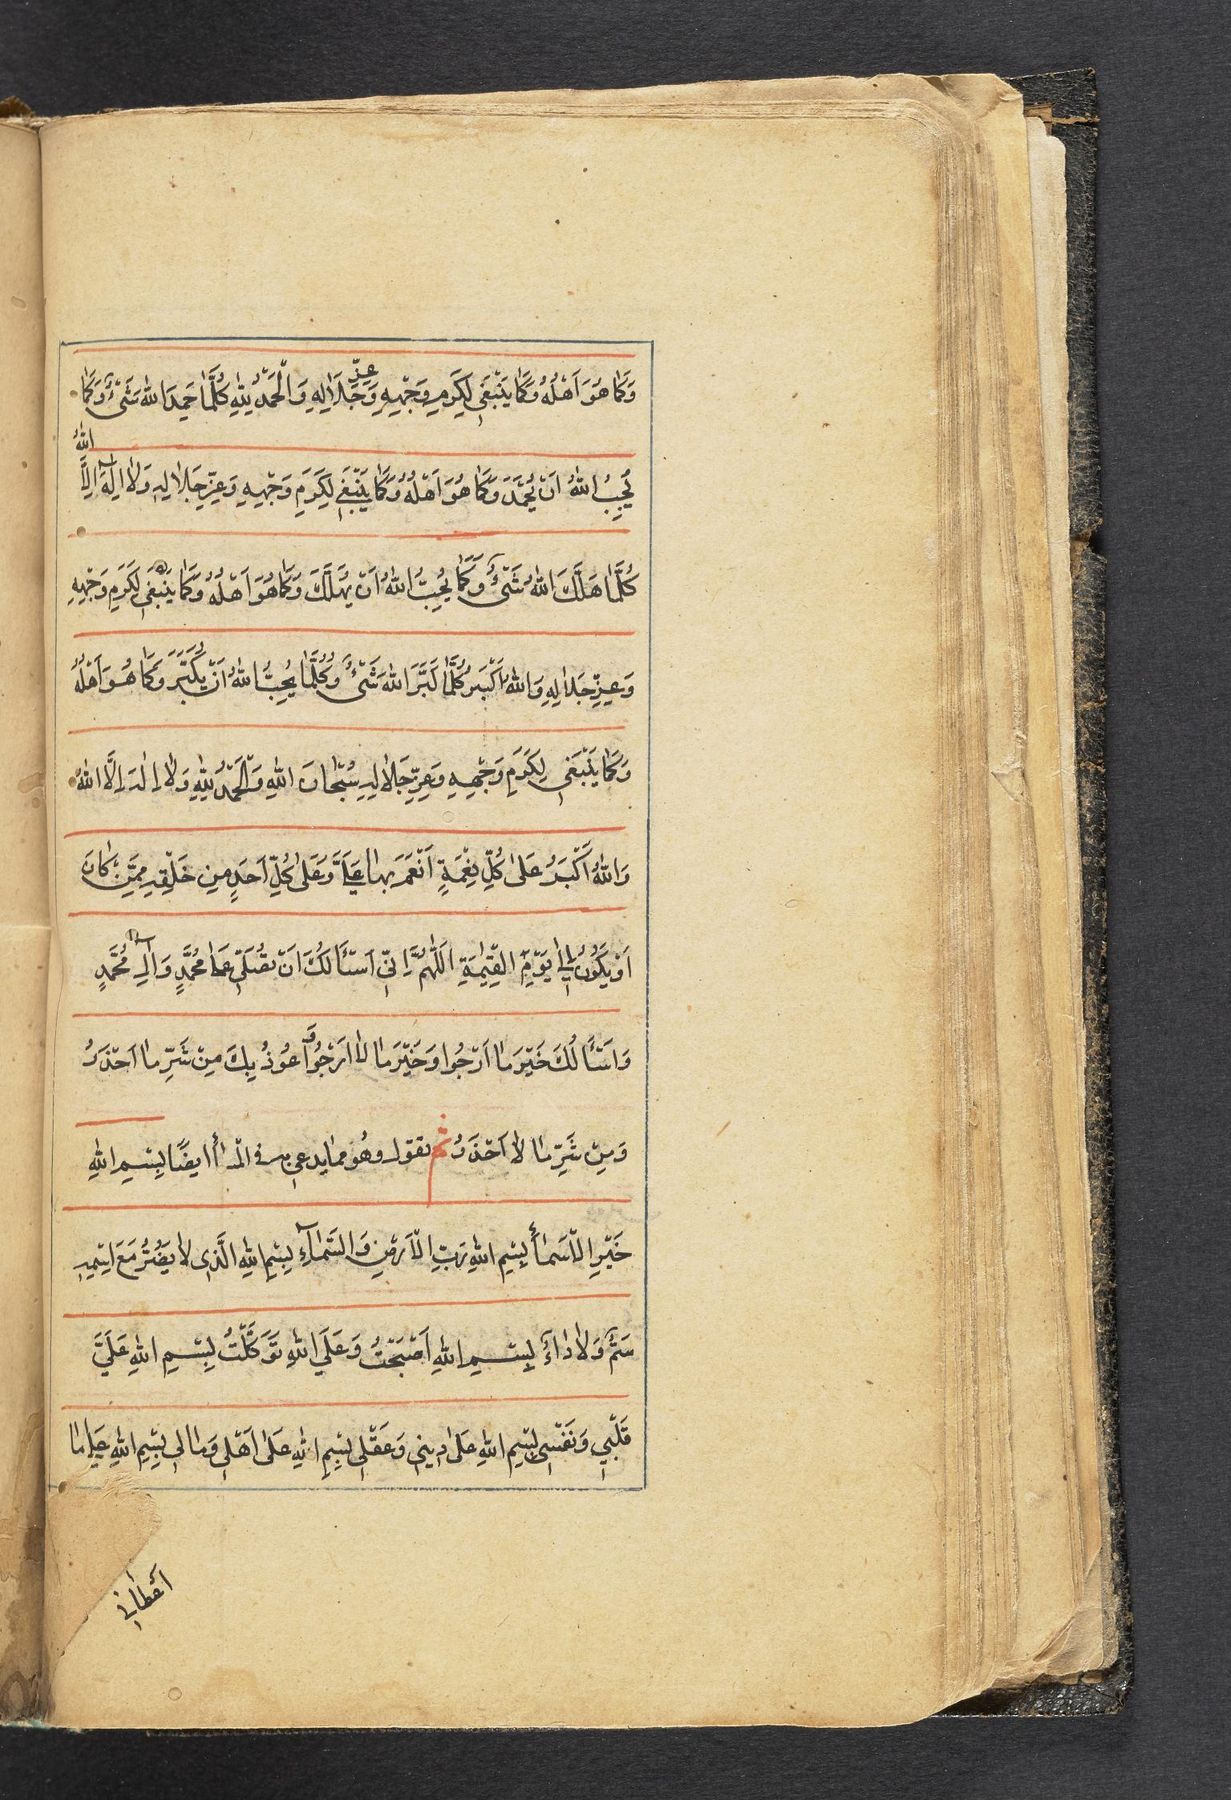 وَكَمٰا هُوَ اَهْلُهُ وَكَمٰا يَنْبَغى لِكَرَمِ وَجْهِهِ وَعِزِّ جَلاٰلِهِ وَالْحَمْدُ لِلّٰهِ كُلَّمٰا حَمِدَ اللهَ شَىْءٌ وَكَمٰا
يُحِبُّ اللهُ اَنْ يُحْمَدَ وَكَمٰا هُوَ اَهْلُهُ وَكَمٰا يَنْبَغى لِكَرَمِ وَجْهِهِ وَعِزِّ جَلاٰلِهِ وَلاٰ اِلٰهَ اِلَّا اللهُ
كُلَّمٰا هَلَّلَ اللهَ شَىْءٌ وَكَمٰا يُحِبُّ اللهُ اَنْ يُهَلَّلَ وَكَمٰا هُوَ اَهْلُهُ وَكَمٰا يَنْبَغى لِكَرَمِ وَجْهِهِ
وَعِزِّ جَلاٰلِهِ وَاللهُ اَكْبَرُ كُلَّمٰا كَبَّرَ اللهَ شَىْءٌ وَكُلَّمٰا يُحِبُّ اللهُ اَنْ يُكَبَّرَ وَكَمٰا هُوَ اَهْلُهُ
وَكَمٰا يَنْبَغى لِكَرَمِ وَجْهِهِ وَعِزِّ جَلاٰلِهِ سُبْحٰانَ اللهِ وَالْحَمْدُ لِلّٰهِ وَلاٰ اِلٰهَ اِلَّا اللهُ
وَاللهُ اَكْبَرُ عَلىٰ كُلِّ نِعْمَةٍ اَنْعَمَ بِهٰا عَلَىَّ وَعَلىٰ كُلِّ اَحَدٍ مِنْ خَلْقِهِ مِمَّنْ كٰانَ
اَوْ يَكُونُ اِلىٰ يَوْمِ الْقِيٰمَةِ اَللّٰهُمَّ اِنّى اَسْئَلُكَ اَنْ تُصَلِّىَ عَلىٰ مُحَمَّدٍ وَاٰلِ مُحَمَّدٍ
وَاَسْئَلُكَ خَيْرَ مٰا اَرْجُوا وَخَيْرَ مٰا لاٰ اَرْجُو وَاَعُوذُ بِكَ مِنْ شَرِّ مٰا اَحْذَرُ
وَمِنْ شَرِّ مٰا لاٰ اَحْذَرُ ثم تقول وهو مما يدعى به فى المسأ ايضًا بِسْمِ اللهِ
خَيْرِ الْاَسْمٰاءِ بِسْمِ اللهِ رَبِّ الْاَرْضِ وَالسَّمٰاۤءِ بِسْمِ اللهِ الَّذى لاٰ يَضُرُّ مَعَ اسْمِهِ
سَمٌّ وَلاٰ دٰاۤءٌ بِسْمِ اللهِ اَصْبَحْتُ وَعَلَى اللهِ تَوَكَّلْتُ بِسْمِ اللهِ عَلىٰ
قَلْبى وَنَفْسى بِسْمِ اللهِ عَلىٰ دينى وَعَقْلى بِسْمِ اللهِ عَلىٰ اَهْلى وَمٰالى بِسْمِ اللهِ عَلىٰ مٰا
اَعْطٰانى